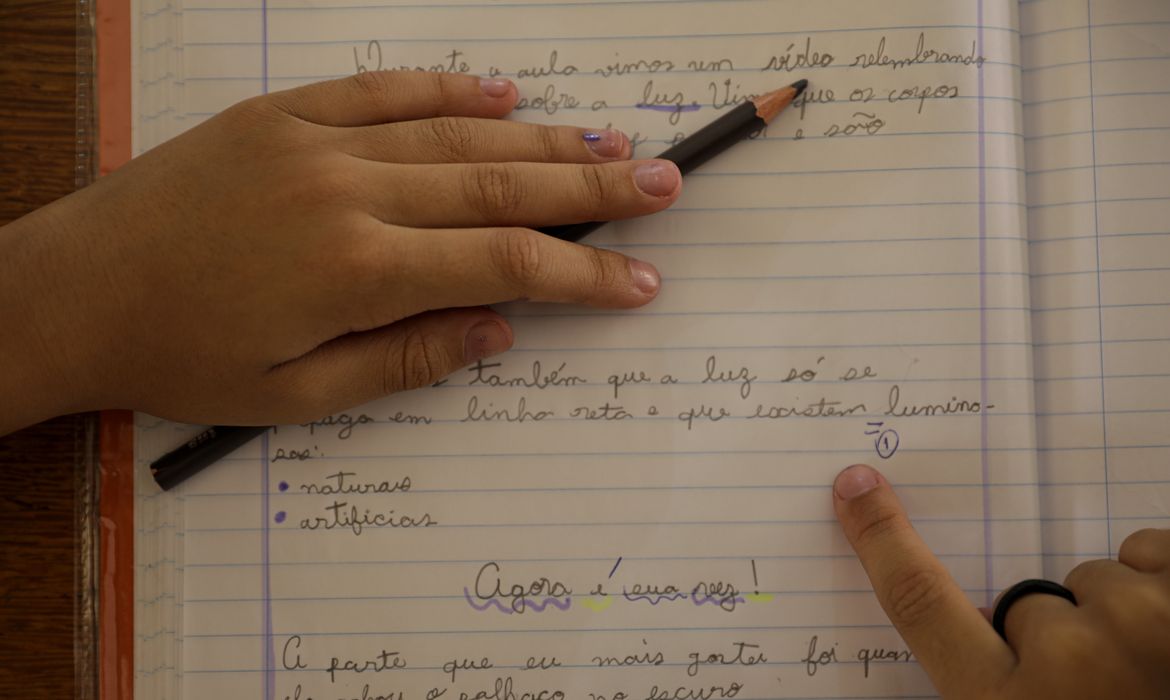 Durante a aula vimos um vídeo relembrando
sobre a luz. que os corpos
e são
também que a luz só se
em linha reta e que existem lumino-
sos:
• naturais
• artificias
=
①
Agora é sua vez!
A parte que eu mais gostei foi
o palhaço no escuro